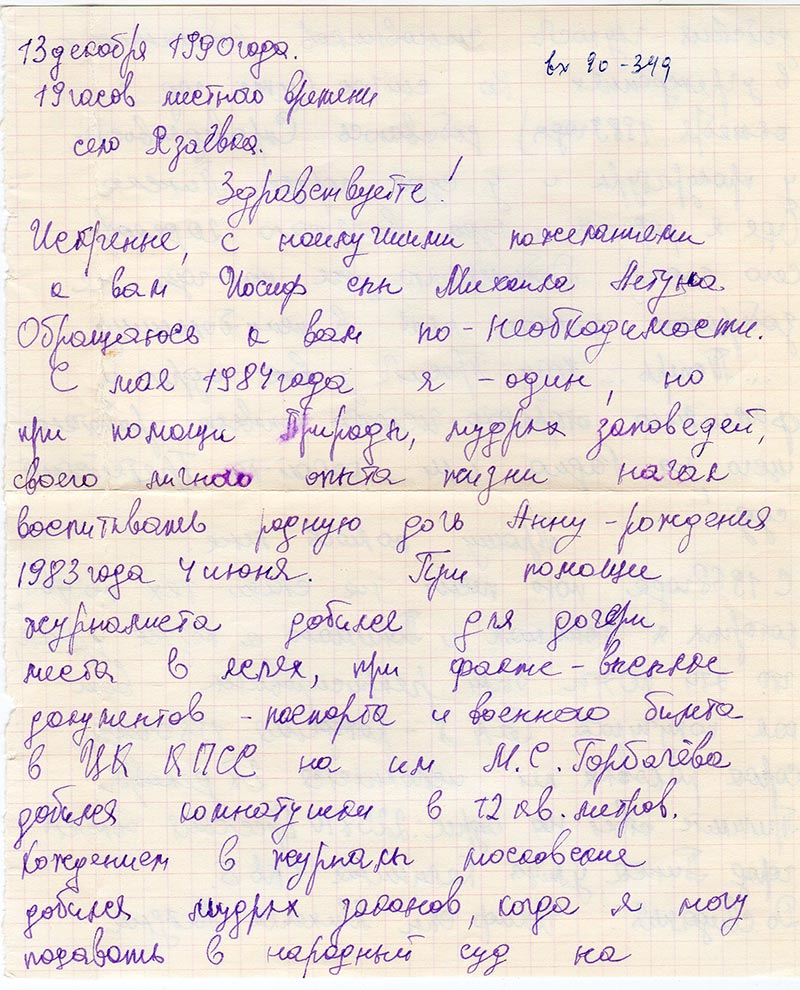 13 декабря 1990 года.
вх 90-349
19 часов местного времени
село Язаёвка.
Здравствуйте!
Искренне, с наилучшими пожеланиями
к вам Иосиф сын Михаила
Обращаюсь к вам по-необходимости.
С мая 1984 года я - один, но
при помощи Природы, мудрых заповедей,
своего личного опыта жизни начал
воспитывать родную дочь Анну - рождения
1983 года 4 июня. При помощи
журналиста добился для дочери
места в яслях, при факте - высылке
документов - паспорта и военного билета
в ЦК КПСС на им М.С. Горбачёва
добился комнатушки в 12 кв. метров.
Хождением в журналы московские
добился мудрых законов, когда я могу
подавать в народный суд на